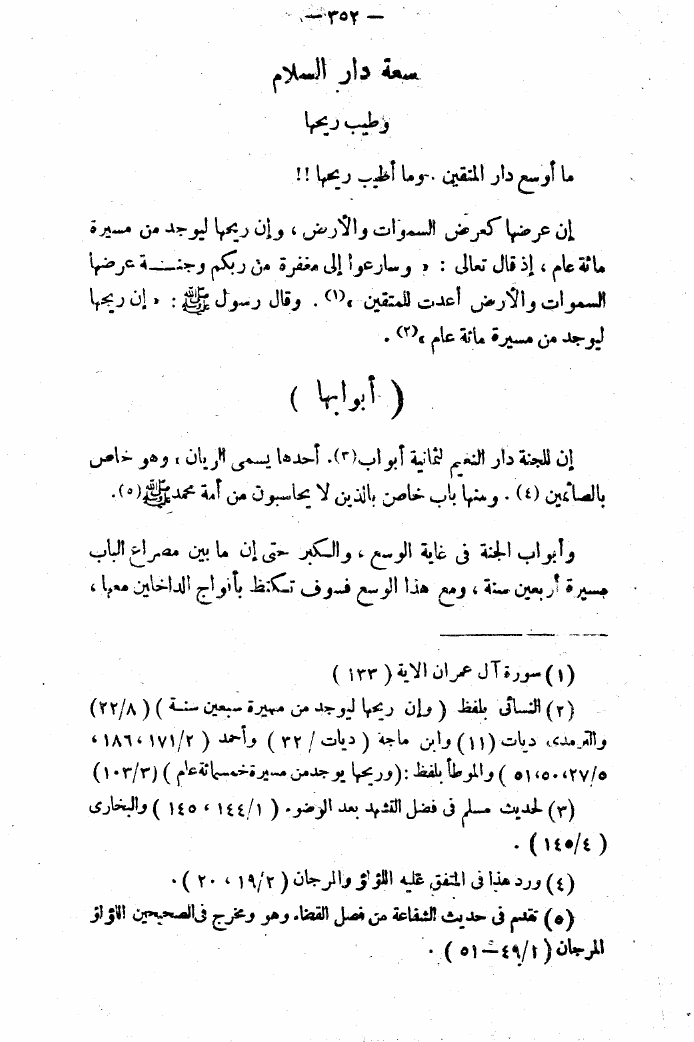 — ٣٥٢ —
سعة دار السلام
وطيب ريحها
ما أوسع دار المتقين . وما أطيب ريحها !!
إن عرضها كعرض السموات والأرض ، وإن ريحها ليوجد من مسيرة
مائة عام ، إذ قال تعالى : « وسارعوا إلى مغفرة من ربكم وجنـــة عرضها
السموات والأرض أعدت للمتقين »(١) . وقال رسول ﷺ : « إن ريحها
ليوجد من مسيرة مائة عام »(٢) .
( أبوابها )
إن للجنة دار النعيم لثمانية أبواب(٣). أحدها يسمى الريان ، وهو خاص
بالصائمين (٤) . ومنها باب خاص بالذين لا يحاسبون من أمة محمد ﷺ(٥).
وأبواب الجنة فى غاية الوسع ، والكبر حتى إن ما بين مصراع الباب
مسيرة أربعين سنة ، ومع هذا الوسع فسوف تكتظ بأفواج الداخلين معها ،
(١) سورة آل عمران الاية ( ١٣٣ )
(٢) النسائى بلفظ ( وإن ريحها ليوجد من مسيرة سبعين سنة ) (٢٢/٨)
والترمذى ديات (١١) وابن ماجة ( ديات / ٣٢ ) وأحمد ( ١٧١/٢ ، ١٨٦ ،
٢٧/٥ ،٥٠ ،٥١ ) والموطأ بلفظ : (وريحها يوجد من مسيرة خمسمائة عام ) (١٠٣/٣)
(٣) لحديث مسلم فى فضل التشهد بعد الوضو. ( ١٤٤/١ ، ١٤٥ ) والبخارى
( ١٤٥/٤ ) .
(٤) ورد هذا فى المتفق عليه اللؤلؤ والمرجان ( ١٩/٢ ، ٢٠ ) .
(٥) تقدم فى حديث الشفاعة من فصل القضاء وهو ومخرج فى الصحيحين اللؤلؤ
المرجان ( ٤٩/١ — ٥١ ) .